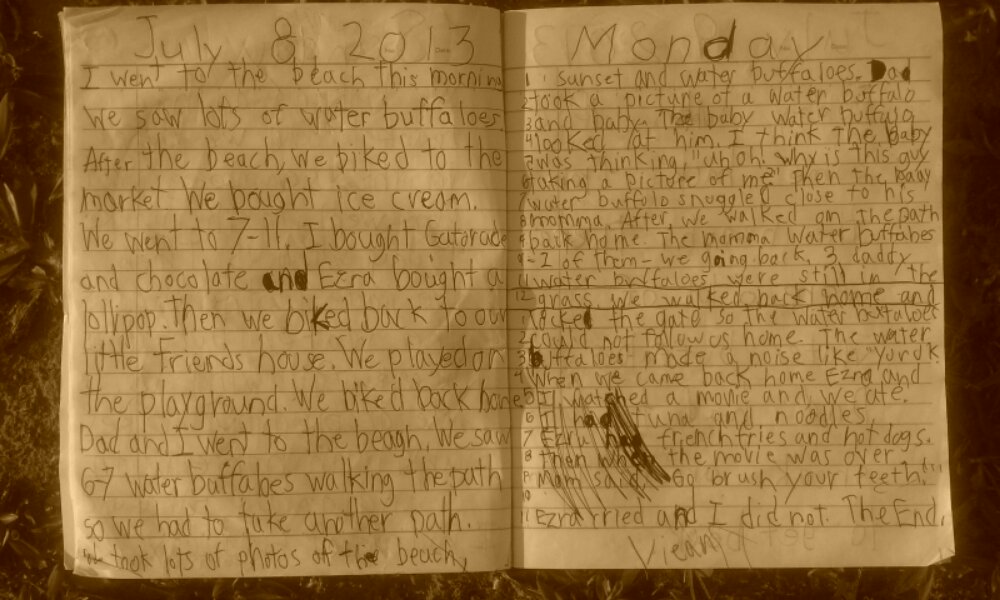 July 8 2013
I went to the beach this morning
We saw lots of water buffaloes.
After the beach, we biked to the
market We bought ice cream.
We went to 7-11. I bought Gatorade
and chocolate and Ezra bought a
lollipop. Then we biked back to our
little friends house. We played on
the playground. We biked back home
Dad and I went to the beagh. We saw
6-7 water buffaloes walking the path
so we had to take another path.
took lots of photos of the beach,
Monday
1 sunset and water buffaloes. Dad
2 took a picture of a water buffalo
3 and baby. The baby water buffalo
4 looked at him. I think the baby
was thinking, "uh oh! why is this guy
taking a picture of me?" Then the baby
water buffalo snuggled close to his
8 momma. After, we walked on the path
back home. The mamma water buffaloes
-2 of them- we going back, 3 daddy
water buffaloes were still in the
12 grass we walked back home and
locked the gate so the water buffaloes
could not follow us home. The water
3 buffaloes made a noise like "
4 When we came back home Ezra and
5 I watched a movie and we ate.
6 I had tuna and noodles.
7 Ezra had frenchfries and hot dogs.
8 Then the movie was over
9 Mom said, "Go brush your teeth!"
10
11 Ezra cried and I did not. The End.